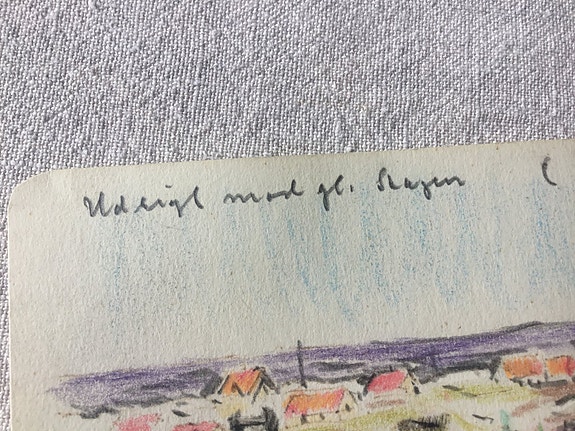 Udsigt mod gl. Skagen (